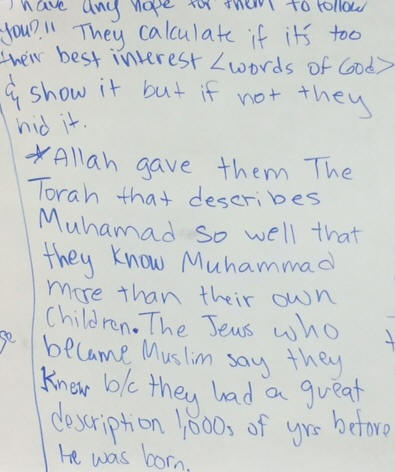 have any hope for them to follow
you?!! They calculate if it's too
their best interest <words of God>
& show it but if not they
hid it.
*Allah gave them The
Torah that describes
Muhamad so well that
they know Muhammad
more than their own
Children. The Jews who
became Muslim say they
knew b/c they had a great
description 1,000s of yrs before
he was born.